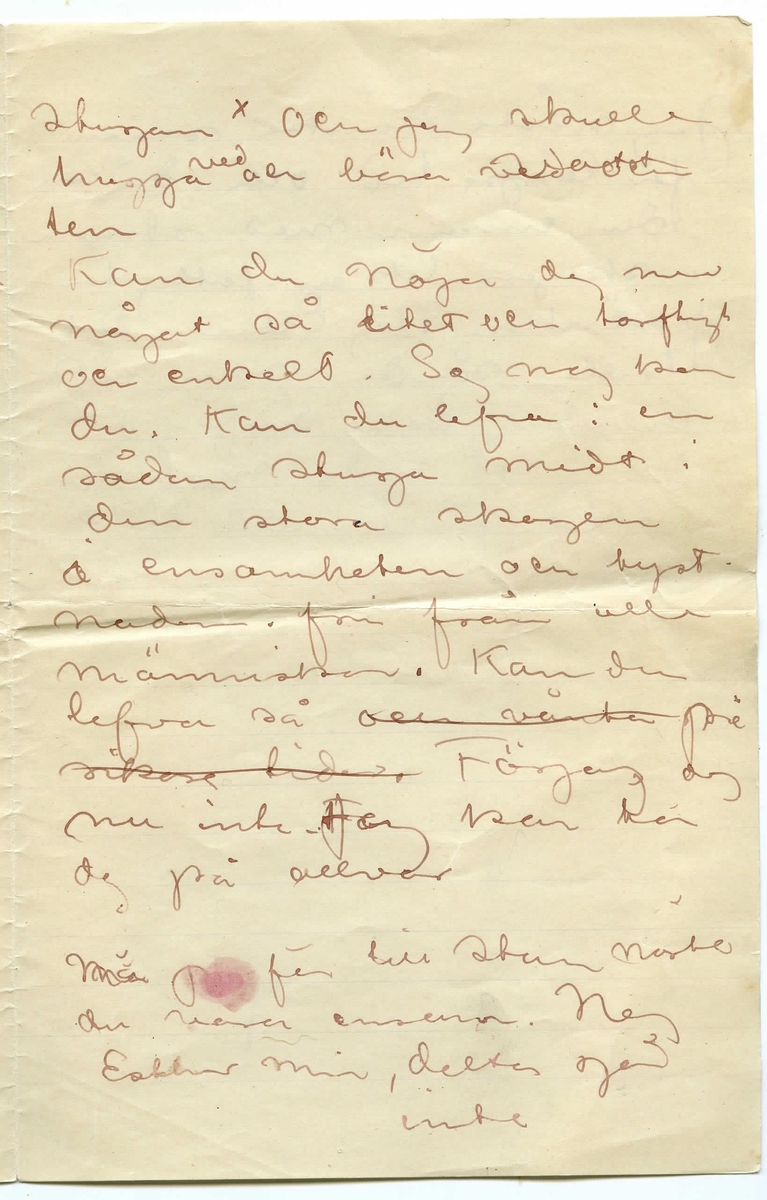 stugan x Och jag skulle
hugga ved och bära
ten
Kan du nöja dig med
något så litet och torftigt
och enkelt. Säg mig kan
du. Kan du lefva i en
sådan stuga midt i
den stora skogen
i ensamheten och tyst-
naden. fri från alla
människor. Kan du
lefva så och vänta på
tider. Försag dig
nu inte. Jag kan ta
dig på allvar
får till stan måste
du vara ensam. Nej
Esther min, detta går
inte